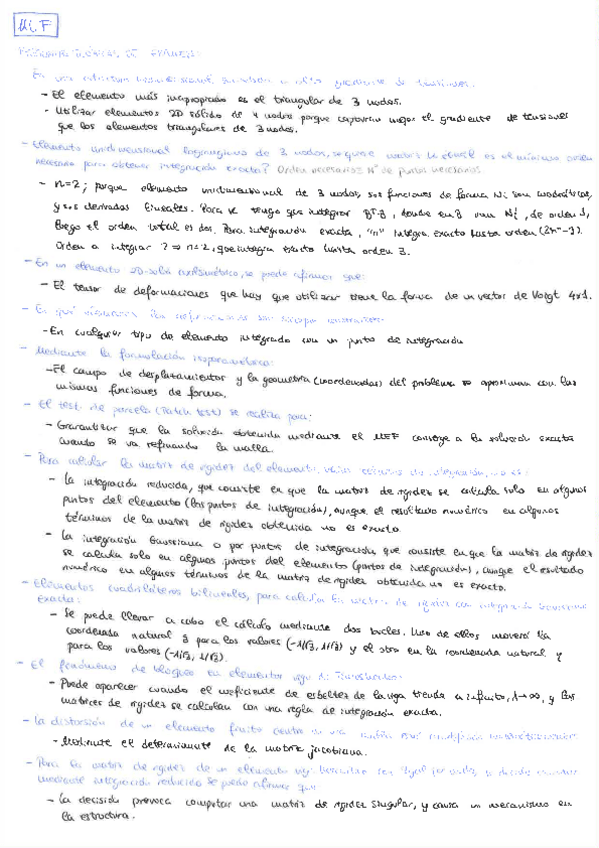 M.E.F
PREGUNTAS TEÓRICAS DE EXÁMENES:
- En una estructura bidimensional, sometida a altos gradientes de tensiones:
- El elemento más inapropiado es el triangular de 3 nodos.
- Utilizar elementos 2D sólido de 4 nodos porque capturan mejor el gradiente de tensiones
que los elementos triangulares de 3 nodos.
- Elemento unidimensional lagrangiano de 3 nodos, se quiere ¿cuál es el mínimo orden
necesario para obtener integración exacta? Orden necesario = Nº de puntos necesarios.
- n=2; porque elemento unidimensional de 3 nodos, sus funciones de forma Ni son cuadráticas,
y sus derivadas lineales. Para K tengo que integrar BᵀB, donde en B van Ni', de orden 1,
luego el orden total es dos. Para integración exacta, "n" integra exacto hasta orden (2n-1).
Orden a integrar 2 ⇒ n=2, que integra exacto hasta orden 3.
- En un elemento 2D-sólido axilsimétrico, se puede afirmar que:
- El tensor de deformaciones que hay que utilizar tiene la forma de un vector de Voigt 4x1.
- En qué elementos las deformaciones son siempre constantes:
- En cualquier tipo de elemento integrado con un punto de integración
- Mediante la formulación isoparamétrica:
- El campo de desplazamientos y la geometría (coordenadas) del problema se aproximan con las
mismas funciones de forma.
- El test de parcela (Patch test) se realiza para:
- Garantizar que la solución obtenida mediante el MEF converge a la solución exacta
cuando se va refinando la malla.
- Para calcular la matriz de rigidez del elemento, varios esquemas de integración, no es:
- La integración reducida, que consiste en que la matriz de rigidez se calcula solo en algunos
puntos del elemento (los puntos de integración), aunque el resultado numérico en algunos
términos de la matriz de rigidez obtenida no es exacto.
- La integración Gaussiana o por puntos de integración, que consiste en que la matriz de rigidez
se calcula solo en algunos puntos del elemento (puntos de integración), aunque el resultado
numérico en algunos términos de la matriz de rigidez obtenida no es exacto.
- Elementos cuadriláteros bilineales, para calcular la matriz de rigidez con integración
exacta:
- Se puede llevar a cabo el cálculo mediante dos bucles. Uno de ellos moverá la
coordenada natural y para los valores (-1/√3, 1/√3) y el otro en la coordenada natural η
para los valores (-1/√3, 1/√3).
- El fenómeno de bloqueo en elementos viga de Timoshenko:
- Puede aparecer cuando el coeficiente de esbeltez de la viga tienda a infinito, λ→∞, y las
matrices de rigidez se calculan con una regla de integración exacta.
- La distorsión de un elemento finito dentro de una malla
- Mediante el determinante de la matriz jacobiana.
- Para la matriz de rigidez de un elemento
mediante integración reducida se puede afirmar que:
- La decisión provoca computar una matriz de rigidez singular, y causa un mecanismo en
la estructura.